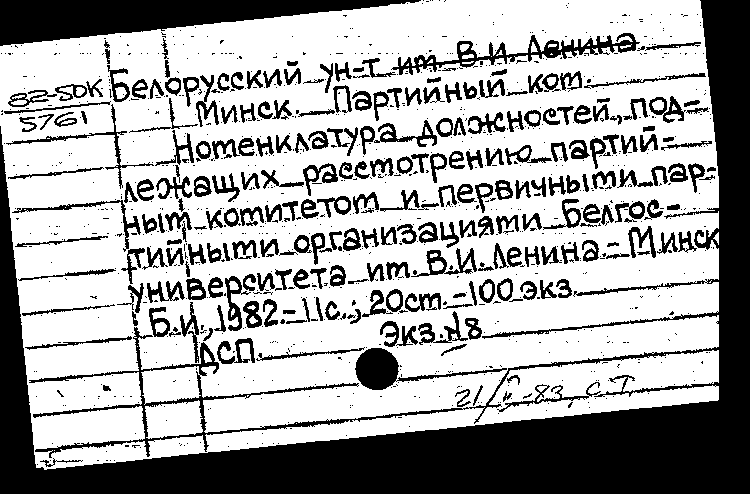 82-5DK
5761
Белорусский ун-т им. В.И. Ленина
Минск. Партийный ком.
Номенклатура должностей, под-
лежащих рассмотрению партий-
ным комитетом и первичными пар-
тийными организациями Белгос-
университета им. В.И. Ленина.- Минск
Б.и., 1982.- 11с.; 20см. -100 экз.
ДСП. Экз.N8
21/II-83, С.Т.